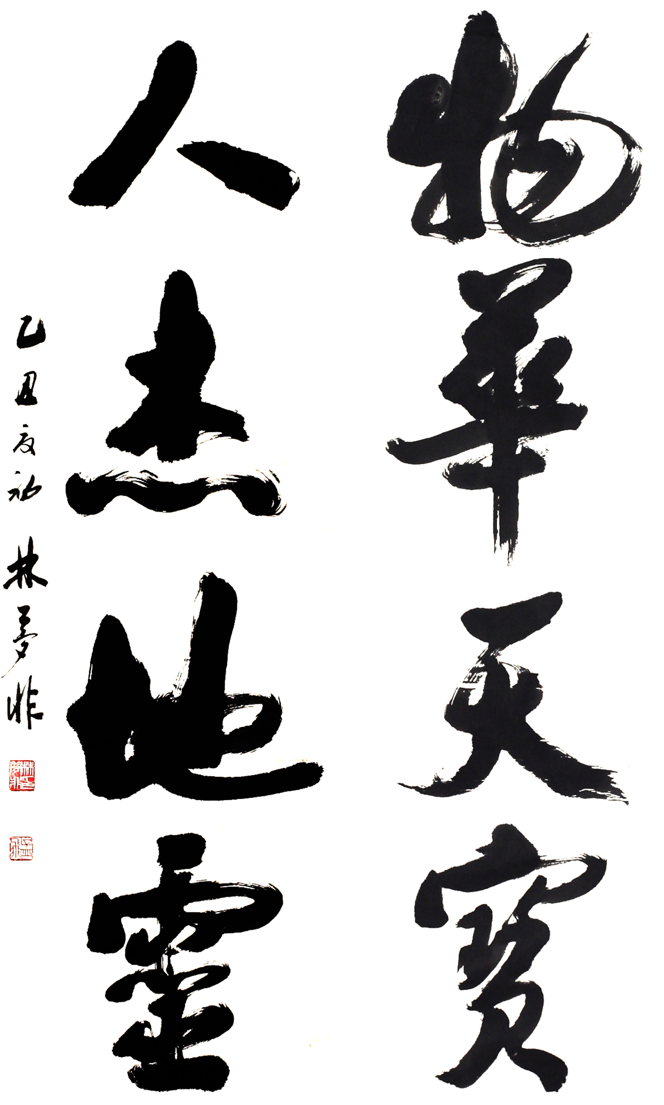 物華天寳
人杰地靈
乙丑夏初 林夢非